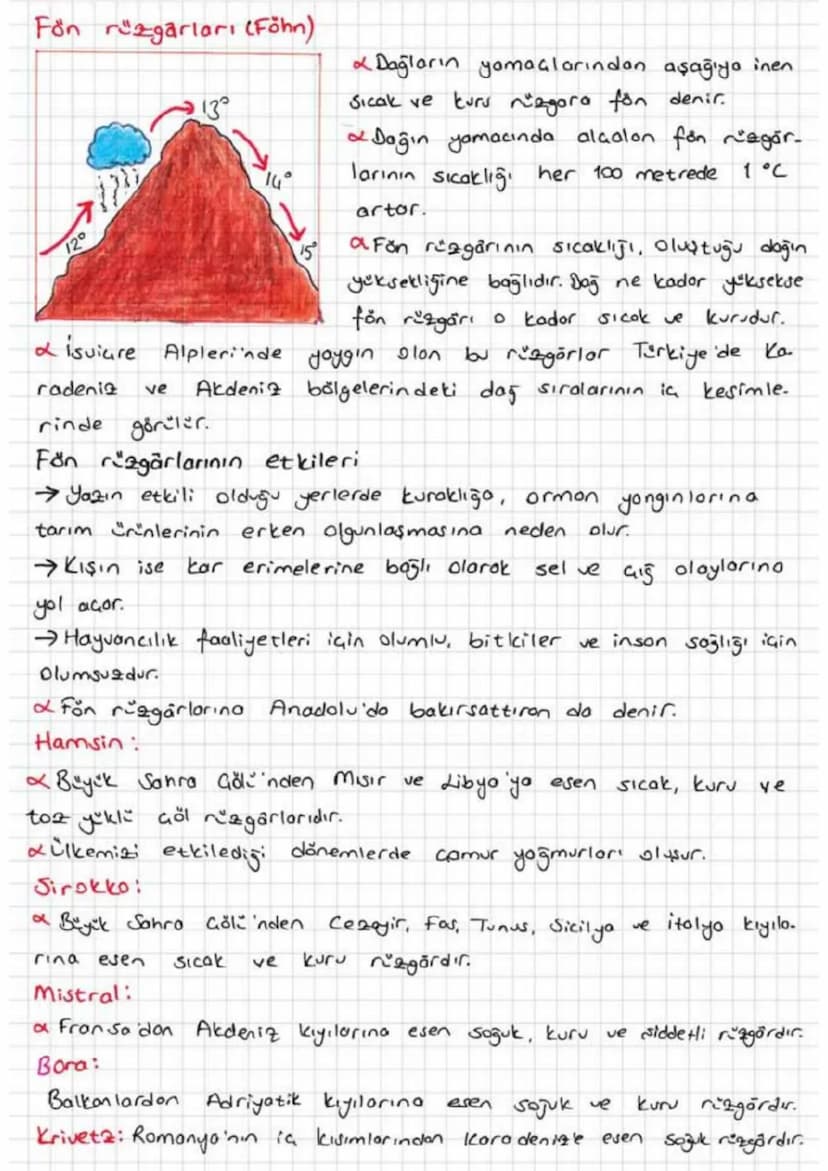 Fön rüzgârları (Föhn)
13°
14°
12°
15°
α Dağların yamaçlarından aşağıya inen
sıcak ve kuru rüzgara fön denir.
α Dağın yamacında alçalan fön rüzgâr-
larının sıcaklığı her 100 metrede 1 °C
artar.
α Fön rüzgârının sıcaklığı, oluştuğu dağın
yüksekliğine bağlıdır. Dağ ne kadar yüksekse
fön rüzgârı o kadar sıcak ve kurudur.
α İsviçre Alpleri'nde yaygın olan bu rüzgârlar Türkiye'de Ka-
radeniz ve Akdeniz bölgelerindeki dağ sıralarının iç kesimle-
rinde görülür.
Fön rüzgârlarının etkileri
→ Yazın etkili olduğu yerlerde kuraklığa, orman yangınlarına
tarım ürünlerinin erken olgunlaşmasına neden olur.
→ Kışın ise kar erimelerine bağlı olarak sel ve çığ olaylarına
yol açar.
→ Hayvancılık faaliyetleri için olumlu, bitkiler ve insan sağlığı için
olumsuzdur.
α Fön rüzgârlarına Anadolu'da bakırsattıran da denir.
Hamsin:
α Büyük Sahra Çölü'nden Mısır ve Libya'ya esen sıcak, kuru ve
toz yüklü çöl rüzgârlarıdır.
α Ülkemizi etkilediği dönemlerde çamur yağmurları oluşur.
Sirokko:
α Büyük Sahra Çölü'nden Cezayir, Fas, Tunus, Sicilya ve İtalya kıyıla-
rına esen sıcak ve kuru rüzgârdır.
Mistral:
α Fransa'dan Akdeniz kıyılarına esen soğuk, kuru ve şiddetli rüzgârdır.
Bora:
Balkanlardan Adriyatik kıyılarına esen soğuk ve kuru rüzgârdır.
Krivetz: Romanya'nın iç kısımlarından Karadeniz'e esen soğuk rüzgârdır.